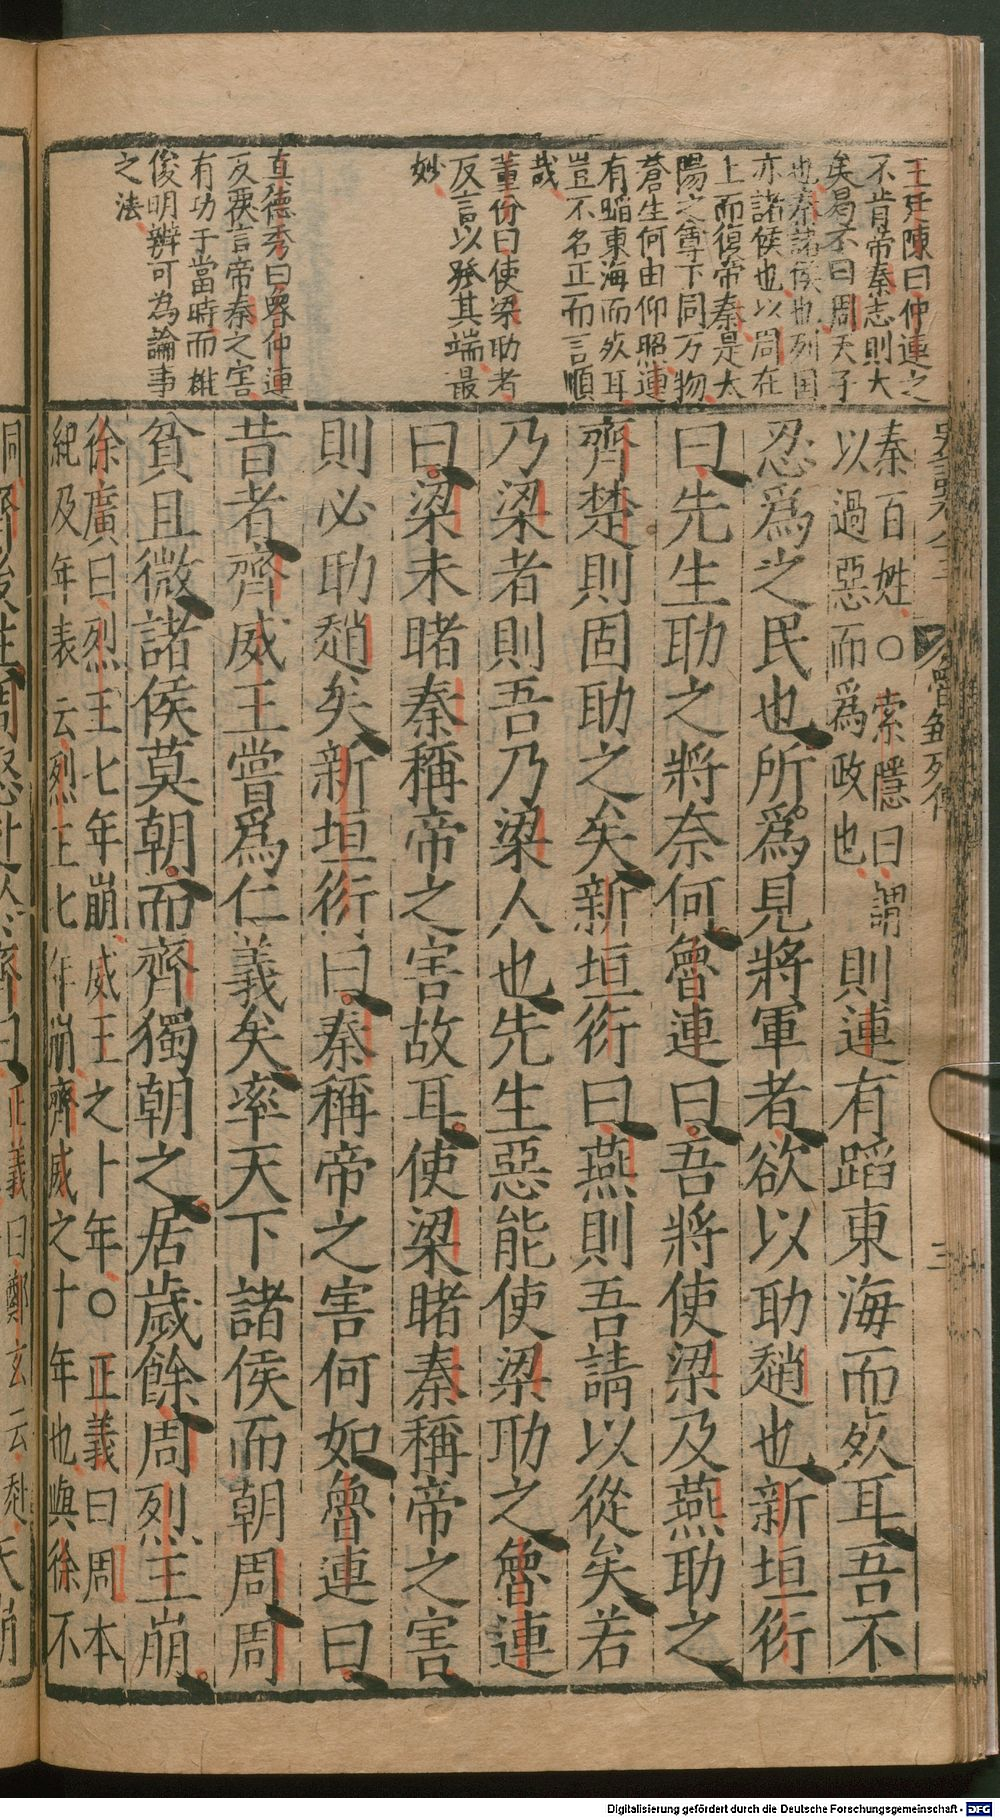 王廷陳曰仲連之
不肯帝秦志則大
矣曷不曰周天子
也秦諸侯也列国
亦諸侯也以周在
上而復帝秦是太
陽之尊下同万物
蒼生何由仰照連
有蹈東海而𣦸耳
豈不名正而言順
哉
董份曰使梁助者
反言以發其端最
妙
真德秀曰畧仲連
反覆言帝秦之害
有功于當時而雄
俊明辨可為論事
之法
魯鄒列傳
三
秦百姓○索隱曰謂
以過惡而爲政也
則連有蹈東海而𣦸耳吾不
忍爲之民也所爲見將軍者欲以助趙也新垣衍
曰先生助之將奈何魯連曰吾將使梁及燕助之
齊楚則固助之矣新垣衍曰燕則吾請以從矣若
乃梁者則吾乃梁人也先生惡能使梁助之魯連
曰梁未睹秦稱帝之害故耳使梁睹秦稱帝之害
則必助趙矣新垣衍曰秦稱帝之害何如魯連曰
昔者齊威王嘗爲仁義矣率天下諸侯而朝周周
貧且微諸侯莫朝而齊獨朝之居歲餘周烈王崩
徐廣曰烈王七年崩威王之十年○正義曰周本
紀及年表云烈王七年崩齊威之十年也與徐不
正義曰鄭玄云
Digitalisierung gefördert durch die Deutsche Forschungsgemeinschaft - DFG